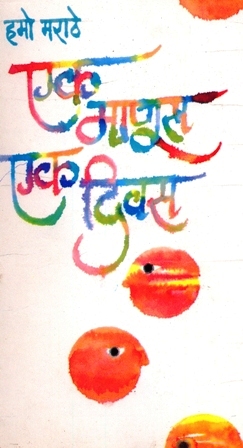 हमो मराठे
एक
माणूस
एक
दिवस